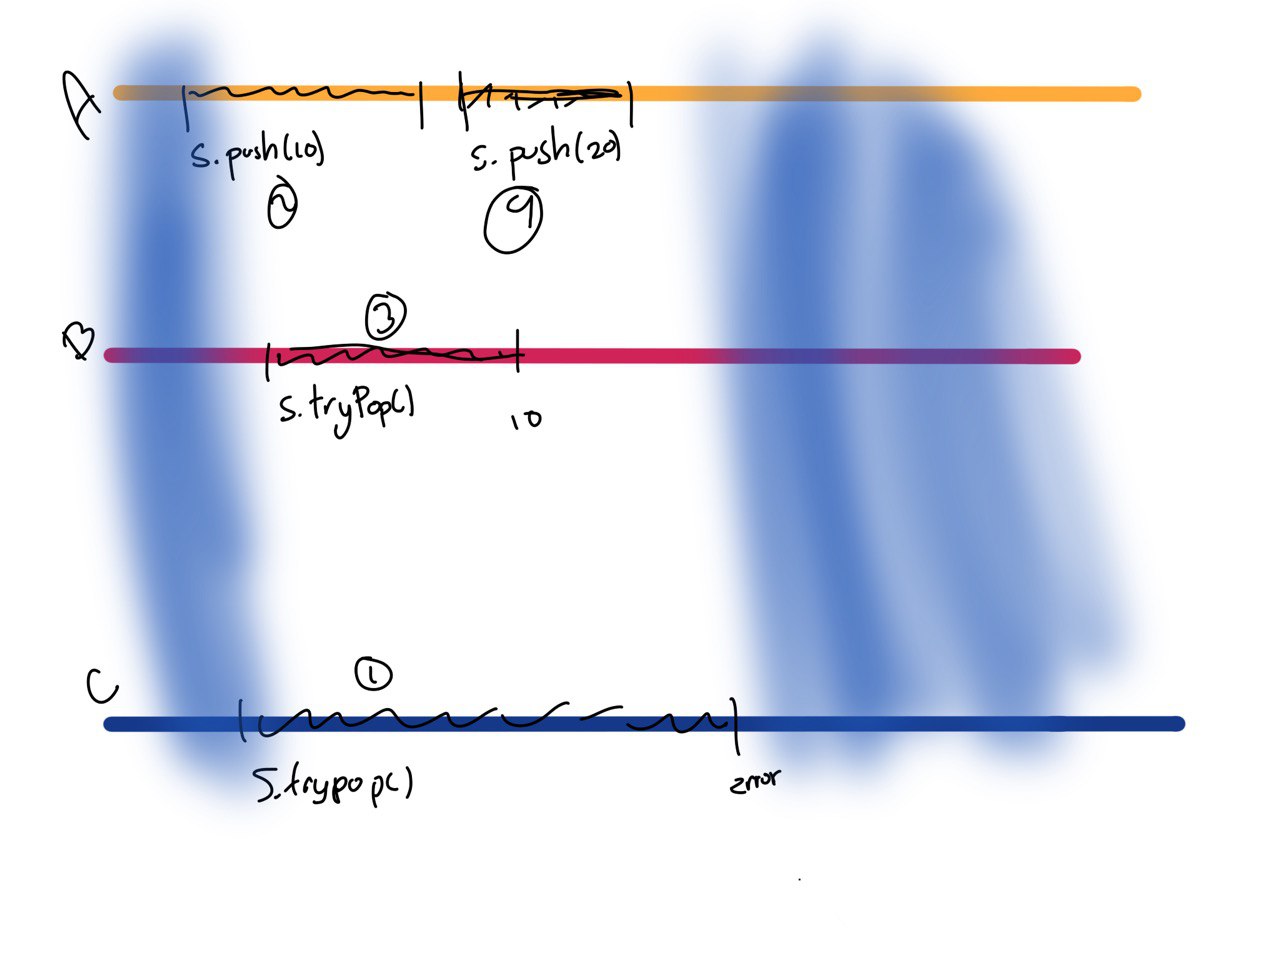 A
s.push(10)
s. push(20)
2
4
B
3
s.tryPop()
10
C
1
S.trypop()
error